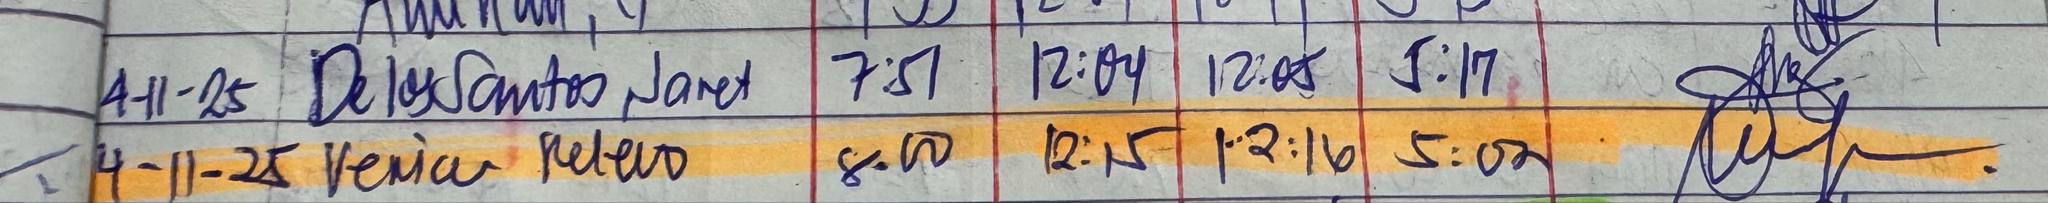 4-11-25 Delos Santos, Janet 7:51 12:04 12:05 5:17
4-11-25 Relevo 8:00 12:15 12:16 5:02